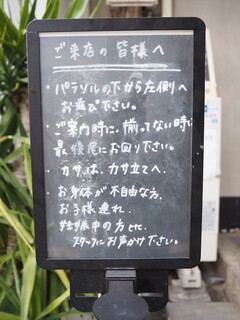 ご来店の皆様へ
・パラソルの下から左側へ
お並び下さい。
・ご案内時に、揃ってない時は
最後尾にお回り下さい。
・カサは、カサ立てへ。
・お身体が不自由な方、
お子様連れ、
妊娠中の方etc.
スタッフにお声がけ下さい。